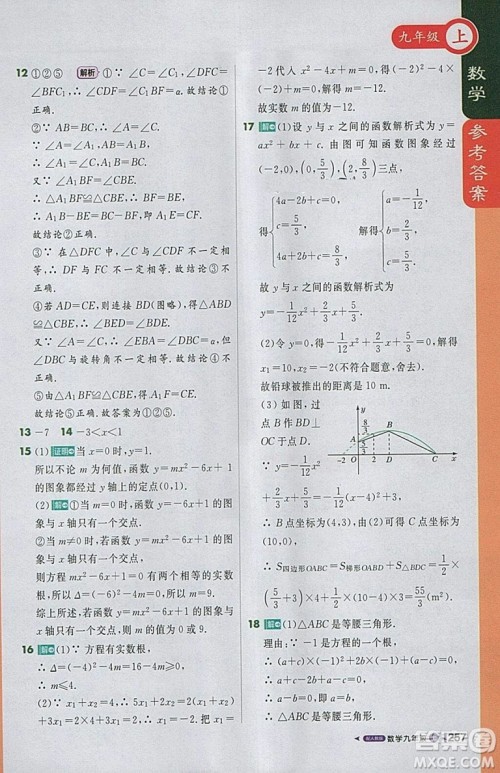 九年级 上
数学
参考答案
12 ①②⑤ 解析 ①∵ ∠C=∠C₁,∠DFC=
∠BFC₁,∴ ∠CDF=∠C₁BF=α.故结
论①正确.
②∵ AB=BC,∴ ∠A=∠C.
∴ ∠A₁=∠C,A₁B=CB.
又∵ ∠A₁BF=∠CBE,
∴ △A₁BF≌△CBE.
∴ BF=BE.∴ A₁B-BE=BC-BF.
∴ A₁E=CF.故结论②正确.
③∵ 在△DFC中,∠C与∠CDF不一定相
等,∴ DF与FC不一定相等.故结论③不一
定正确.
④若AD=CE,则连接BD(图略),得△ABD
≌△CBE,∴ ∠EBA=∠DBC=α.而
∠DBC与旋转角不一定相等.故结论④不
一定正确.
⑤由△A₁BF≌△CBE,得A₁F=CE.故结
论⑤正确.故答案为①②⑤.
13 -7 14 -3<x<1
15 (1) 证明 当x=0时,y=1.
所以不论m为何值,函数y=mx²-6x+1
的图象都经过y轴上的定点(0,1).
(2) 解 ①当m=0时,函数y=-6x+1的图
象与x轴只有一个交点.
②当m≠0时,若函数y=mx²-6x+1的图
象与x轴只有一个交点,
则方程mx²-6x+1=0有两个相等的实数
根,所以Δ=(-6)²-4m=0,解得m=9.
综上所述,若函数y=mx²-6x+1的图象与
x轴只有一个交点,则m的值为0或9.
16 解 (1)∵ 方程有实数根,
∴ Δ=(-4)²-4m=16-4m≥0.
∴ m≤4.
(2)∵ x₁+x₂=4,∴ 5x₁+2x₂=2(x₁+
x₂)+3x₁=2×4+3x₁=2.∴ x₁=-2.把x₁=
-2代入x²-4x+m=0,得(-2)²-4×
(-2)+m=0,解得m=-12.
故实数m的值为-12.
17 解 (1)设y与x之间的函数解析式为y=
ax²+bx+c.由图可知函数图象过
(-2,0),(0,5/3),(2,8/3)三点,
得{4a-2b+c=0, c=5/3, 4a+2b+c=8/3, 解得{a=-1/12, b=2/3, c=5/3.
故y与x之间的函数解析式为
y=-1/12x²+2/3x+5/3.
(2)令y=0,得-1/12x²+2/3x+5/3=0,解得
x₁=10,x₂=-2(不符合题意,舍去).
故铅球被推出的距离是10 m.
(3)如图,作BD⊥
OC于点D.
∵ y=-1/12x²+
2/3x+5/3=
-1/12(x-4)²+3,
∴ B点坐标为(4,3),由(2)得C点坐标为
(10,0),
∴ S四边形OABC=S梯形OABD+S△DBC=1/2×
(5/3+3)×4+1/2×6×3=55/3(m²).
18 解 (1)△ABC是等腰三角形.
理由:∵ -1是方程的一个根,
∴ (a+c)×(-1)²-2b+(a-c)=0.
∴ a+c-2b+a-c=0.
∴ a-b=0.∴ a=b.
∴ △ABC是等腰三角形.
数学九年级 257
答案圈
MXQE.COM